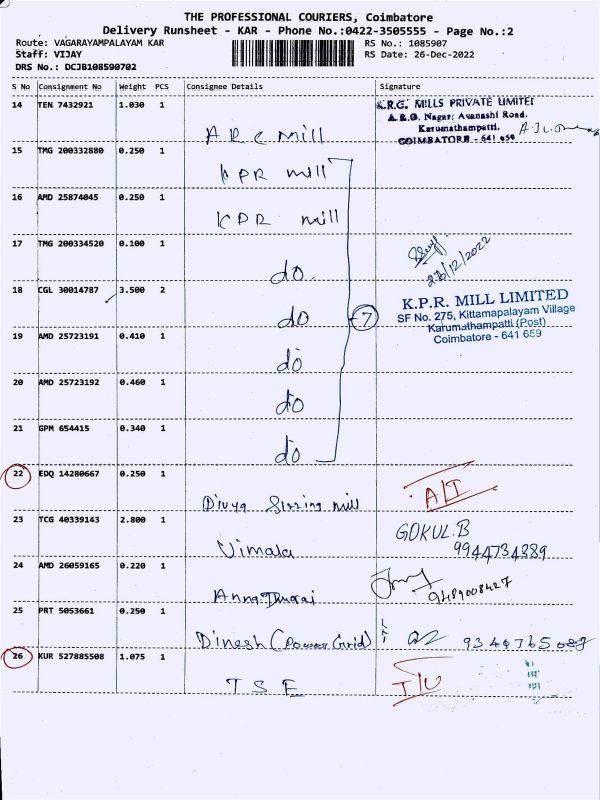 THE PROFESSIONAL COURIERS, Coimbatore
Delivery Runsheet - KAR - Phone No.:0422-3505555 - Page No.:2
Route: VAGARAYAMPALAYAM KAR
RS No.: 1085907
Staff: VIJAY
RS Date: 26-Dec-2022
DRS No.: DCJB108590702
S No Consignment No Weight PCS Consignee Details Signature
14 TEN 7432921 1.030 1
A.R.G. MILLS PRIVATE LIMITED
A.R.G. Nagar, Avanashi Road,
Karumathampatti,
COIMBATORE - 641 659
ARC Mill
15 TMG 200332880 0.250 1
KPR mill
16 AMD 25874045 0.250 1
KPR mill
17 TMG 200334520 0.100 1
do
26/12/2022
18 CGL 30014787 3.500 2
do
7
K.P.R. MILL LIMITED
SF No. 275, Kittamapalayam Village
Karumathampatti (Post)
Coimbatore - 641 659
19 AMD 25723191 0.410 1
do
20 AMD 25723192 0.460 1
do
21 GPM 654415 0.340 1
do
22 EDQ 14280667 0.250 1
Divya Sizzing mill
A/I
23 TCG 40339143 2.800 1
Vimala
GOKUL.B
9944734389
24 AMD 26059165 0.220 1
Anna Durai
9489008427
25 PRT 5053661 0.250 1
Dinesh (Power Grid)
9344765087
26 KUR 527885508 1.075 1
T S E
I/U